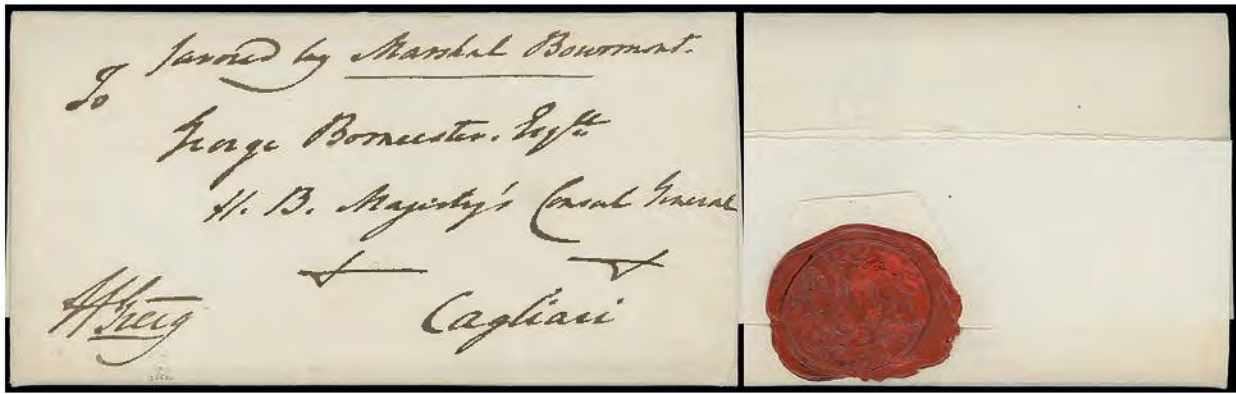 favored by Marshal Bourmont.
To
George Bomeester. Esqre
H. B. Majesty's Consul General
Cagliari
HGreig